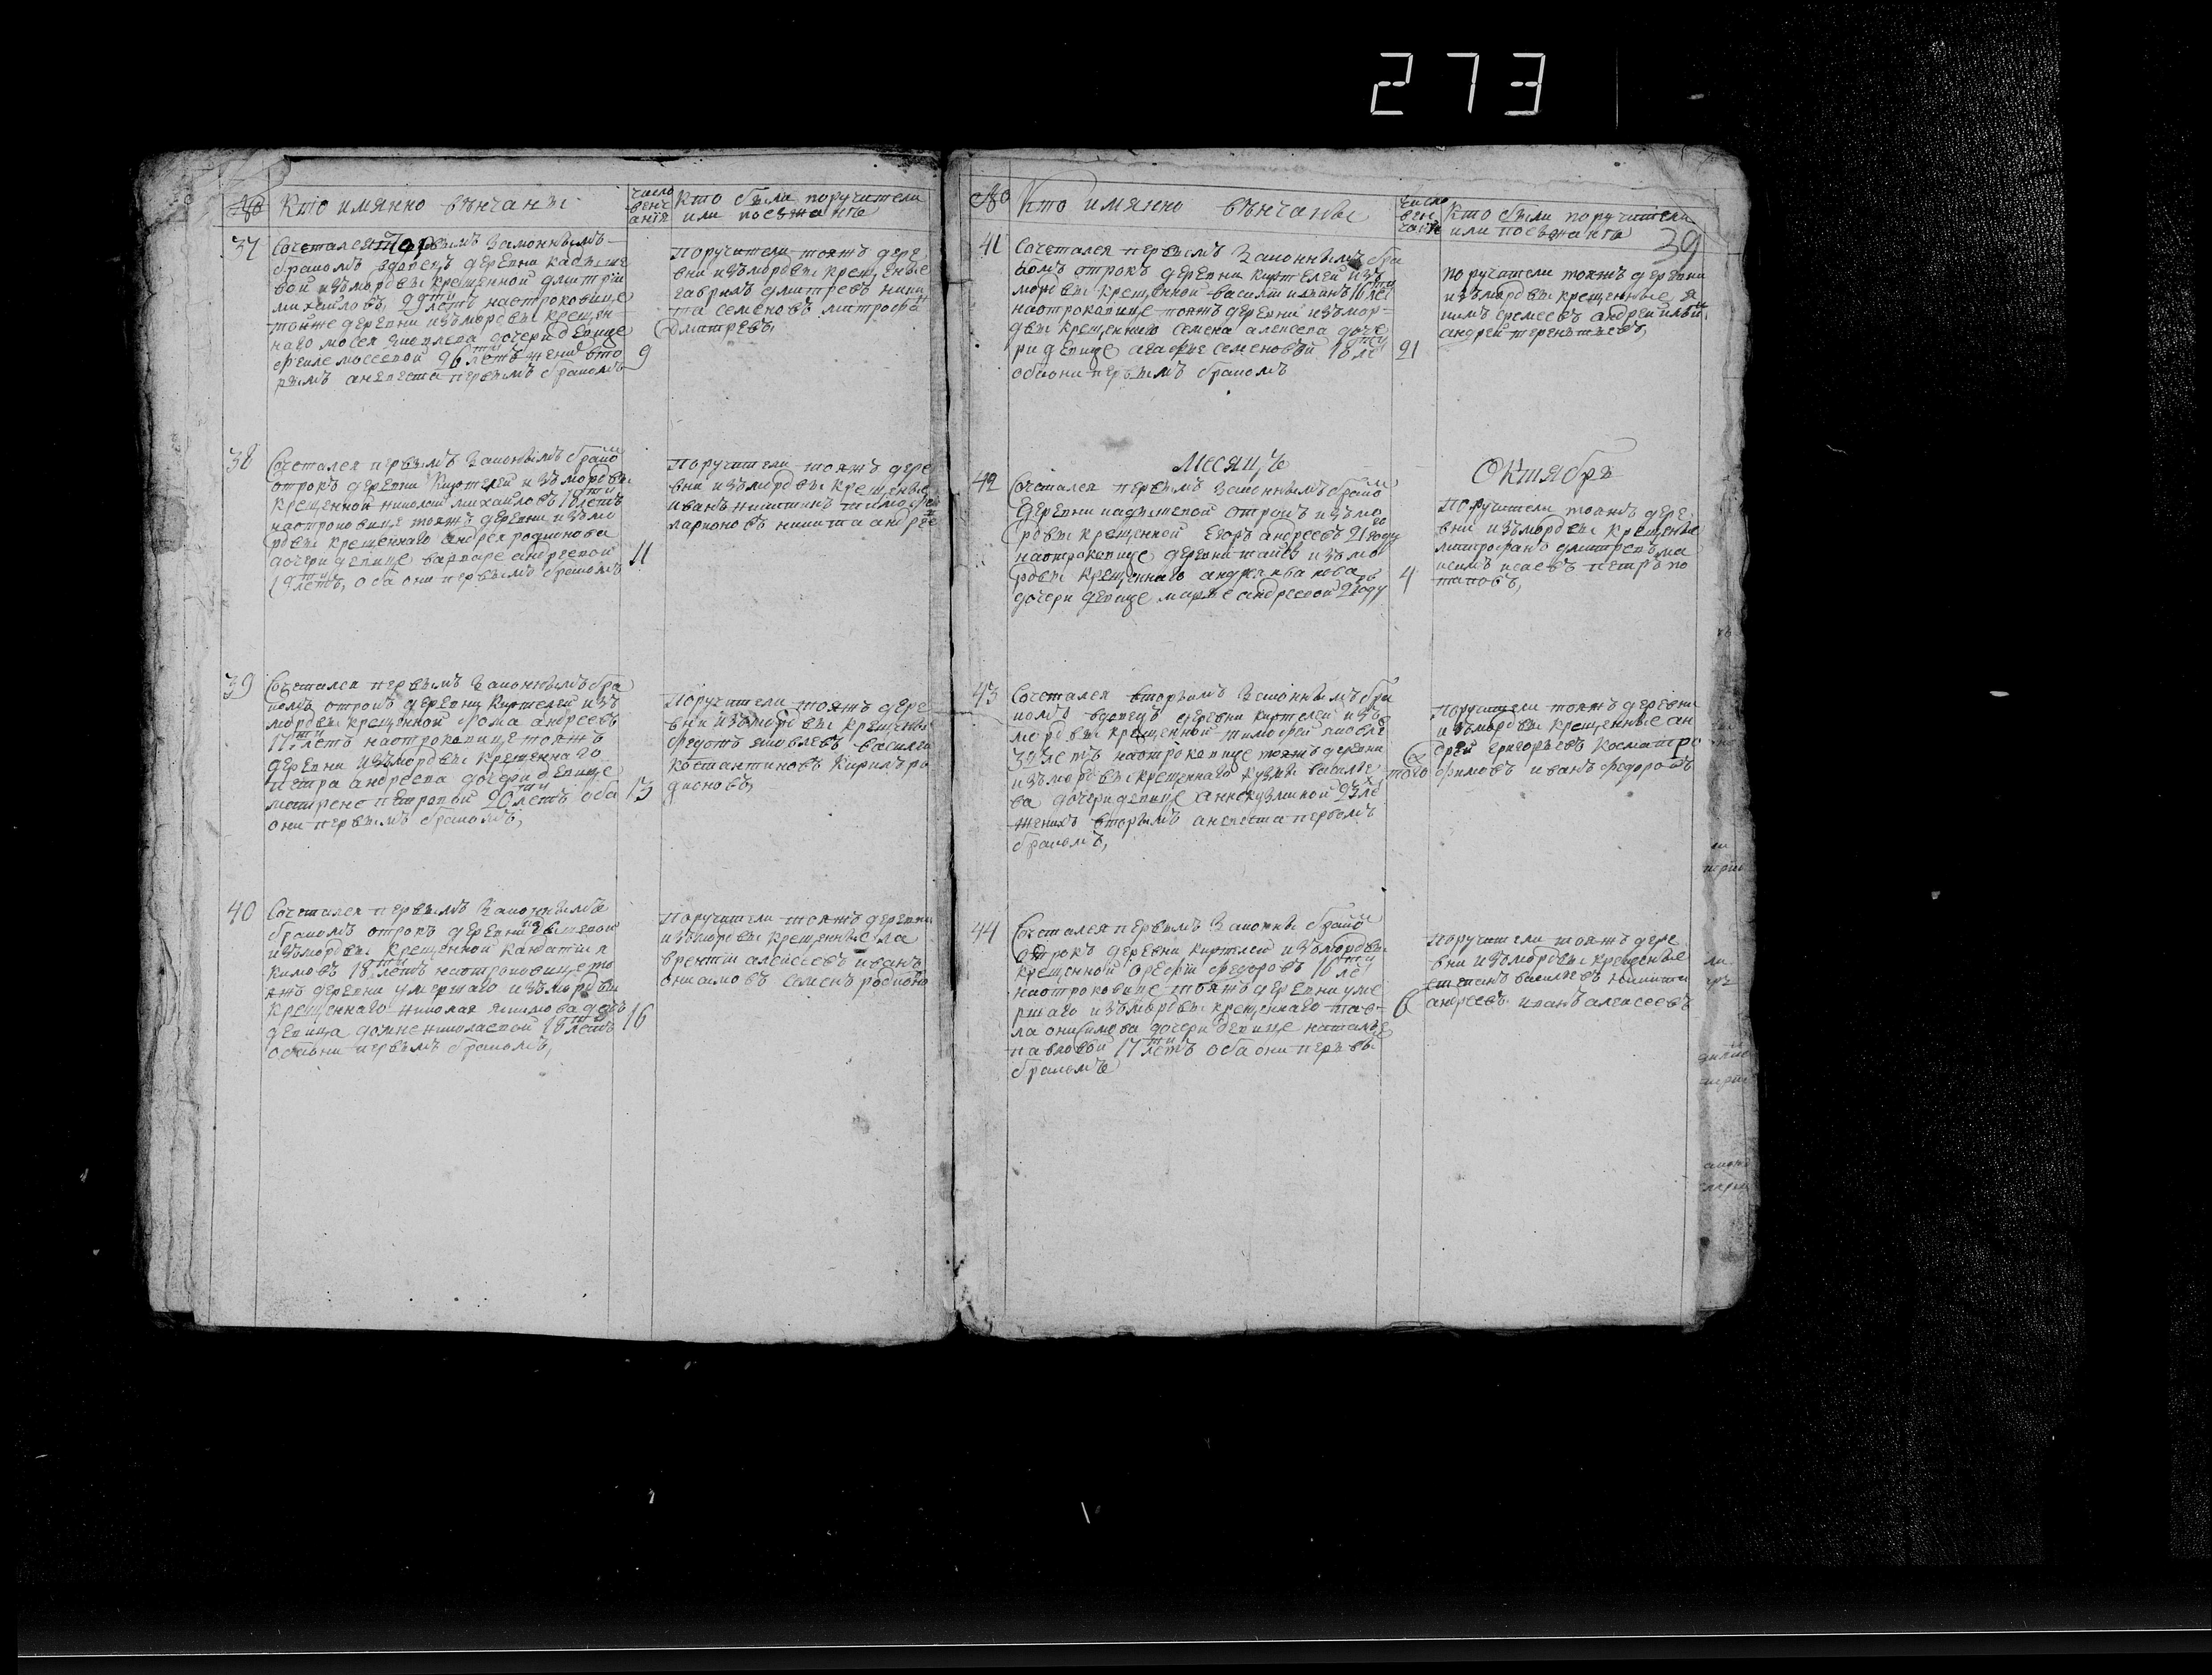 273
№
Кто имянно венчаны
число венчания
Кто были поручители
или поезжанѣ
37
Сочетался вторымъ законнымъ
бракомъ вдовецъ деревни
вой изъ мордвы крещенной дмитрий
михайловъ летъ на отроковице
тойже деревни изъ мордвы крещен
наго мосея дочери девице
мосеевой 26 летъ жених вто
рымъ а невеста первымъ бракомъ
9
Поручители тояжъ дере
вни изъ мордвы крещеные
гаврилъ дмитревъ ники
та семеновъ митрофанъ
дмитревъ,
38
Сочетался первымъ законнымъ брако
отрокъ деревни Киртелей изъ мордвы
крещенной николай михайловъ 18 летъ
на отроковице тояжъ деревни изъ мо
рдвы крещеннаго андрея родионова
дочери девице варваре андреевой
19 летъ, оба они первымъ бракомъ
11
Поручители тояжъ дере
вни изъ мордвы крещеные
иванъ никитинъ тимофей
ларионовъ никита андрее
39
Сочетался первымъ законнымъ бра
комъ отрокъ деревни Киртелей изъ
мордвы крещенной фома андреевъ
17 летъ на отроковице тояжъ
деревни изъ мордвы крещеннаго
петра андреева дочери девице
матрене петровой 20 летъ оба
они первымъ бракомъ,
13
Поручители тояжъ дере
вни изъ мордвы крещеные
федотъ яковлевъ василей
костантиновъ кирилъ ро
дионовъ,
40
Сочетался первымъ законнымъ
бракомъ отрокъ деревни
изъ мордвы крещенной я
кимовъ 18 летъ на отроковице то
яжъ деревни умершаго изъ мордвы
крещеннаго николая якимова дочъ
девица домне николаевой 19 летъ
оба они первымъ бракомъ,
16
Поручители тояжъ деревни
изъ мордвы крещенные ла
врентий алексеевъ иванъ
онисимовъ семенъ родионо
№
Кто имянно венчаны
число вен чания
Кто были поручители
или поезжанѣ
39
41
Сочетался первымъ законнымъ бра
комъ отрокъ деревни киртелей изъ
мордвы крещенной василий 16 ле
на отроковице тояжъ деревни изъ мор
двы крещеннаго семена алексеева доче
ри девице агафье семеновой 18 ле
оба они первымъ бракомъ
21
Поручители тояжъ деревни
изъ мордвы крещенные я
кимъ еремеевъ андрей ильи
андрей терентьевъ,
Месяцъ
Октябрь
42
Сочетался первымъ законнымъ брако
деревни отрокъ изъ мо
рдвы крещенной Егоръ андреевъ 21 году
на отроковице деревни изъ мо
рдвы крещеннаго андрея иванова
дочери девице марье андреевой году
4
Поручители тояжъ дере
вни изъ мордвы крещеные
митрофанъ дмитревъ ма
ксимъ исаевъ петръ по
таповъ,
43
Сочетался вторымъ законнымъ бра
комъ вдовецъ деревни киртелей изъ
мордвы крещенной тимофей яковле
32 летъ на отроковице тояжъ деревни
изъ мордвы крещеннаго кузмы василье
ва дочери девице анне кузминой 23 ле
жених вторымъ а невеста первомъ
бракомъ,
того
Поручители тояжъ деревни
изъ мордвы крещенные ан
дрей григорьевъ косма тро
фимовъ иванъ федоровъ
44
Сочетался первымъ законны брако
отрокъ деревни киртелей изъ мордвы
крещенной орефий федоровъ 16 ле
на отроковице тояжъ деревни уме
ршаго изъ мордвы крещеннаго пав
ла онисимова дочери девице наталье
павловой 17 летъ оба они первы
бракомъ
6
Поручители тояжъ дере
вни изъ мордвы крещеные
степанъ васильевъ никита
андреевъ иванъ алексеевъ